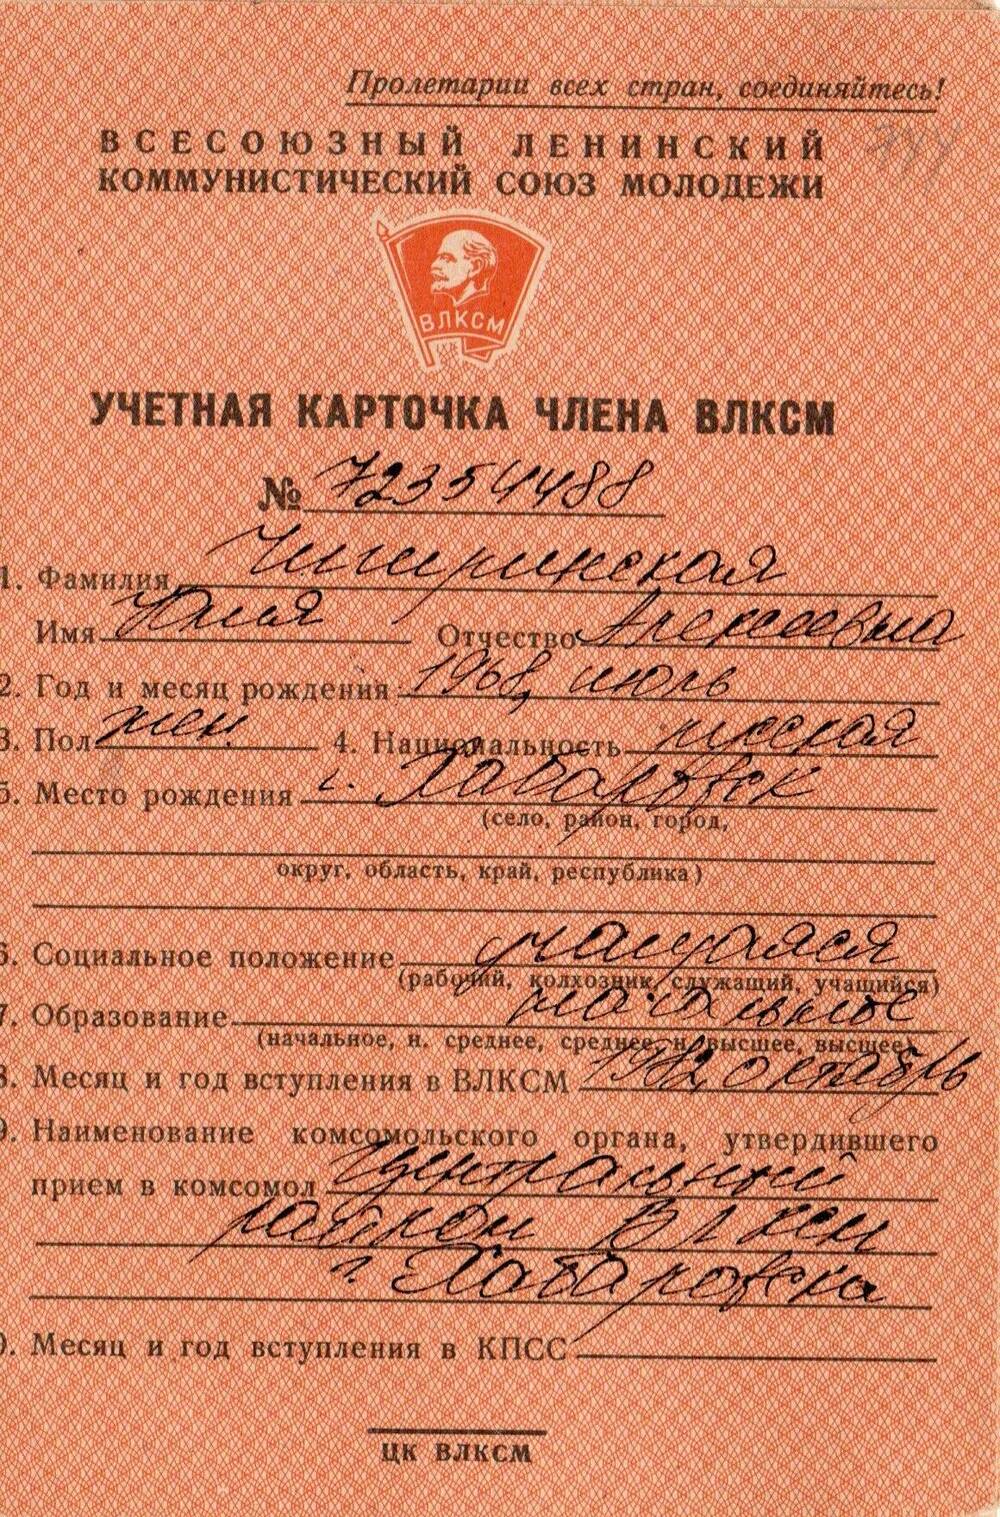 Пролетарии всех стран, соединяйтесь!
ВСЕСОЮЗНЫЙ ЛЕНИНСКИЙ
КОММУНИСТИЧЕСКИЙ СОЮЗ МОЛОДЕЖИ
ВЛКСМ
УЧЕТНАЯ КАРТОЧКА ЧЛЕНА ВЛКСМ
№ 72354488
1. Фамилия Чигиринская
Имя Юлия Отчество Алексеевна
2. Год и месяц рождения 1968, июль
3. Пол жен. 4. Национальность русская
5. Место рождения г. Хабаровск
(село, район, город,
округ, область, край, республика)
6. Социальное положение учащаяся
(рабочий, колхозник, служащий, учащийся)
7. Образование начальное
(начальное, н. среднее, среднее, н. высшее, высшее)
8. Месяц и год вступления в ВЛКСМ 1982, октябрь
9. Наименование комсомольского органа, утвердившего
прием в комсомол Центральный
райком ВЛКСМ
г. Хабаровска
0. Месяц и год вступления в КПСС
ЦК ВЛКСМ